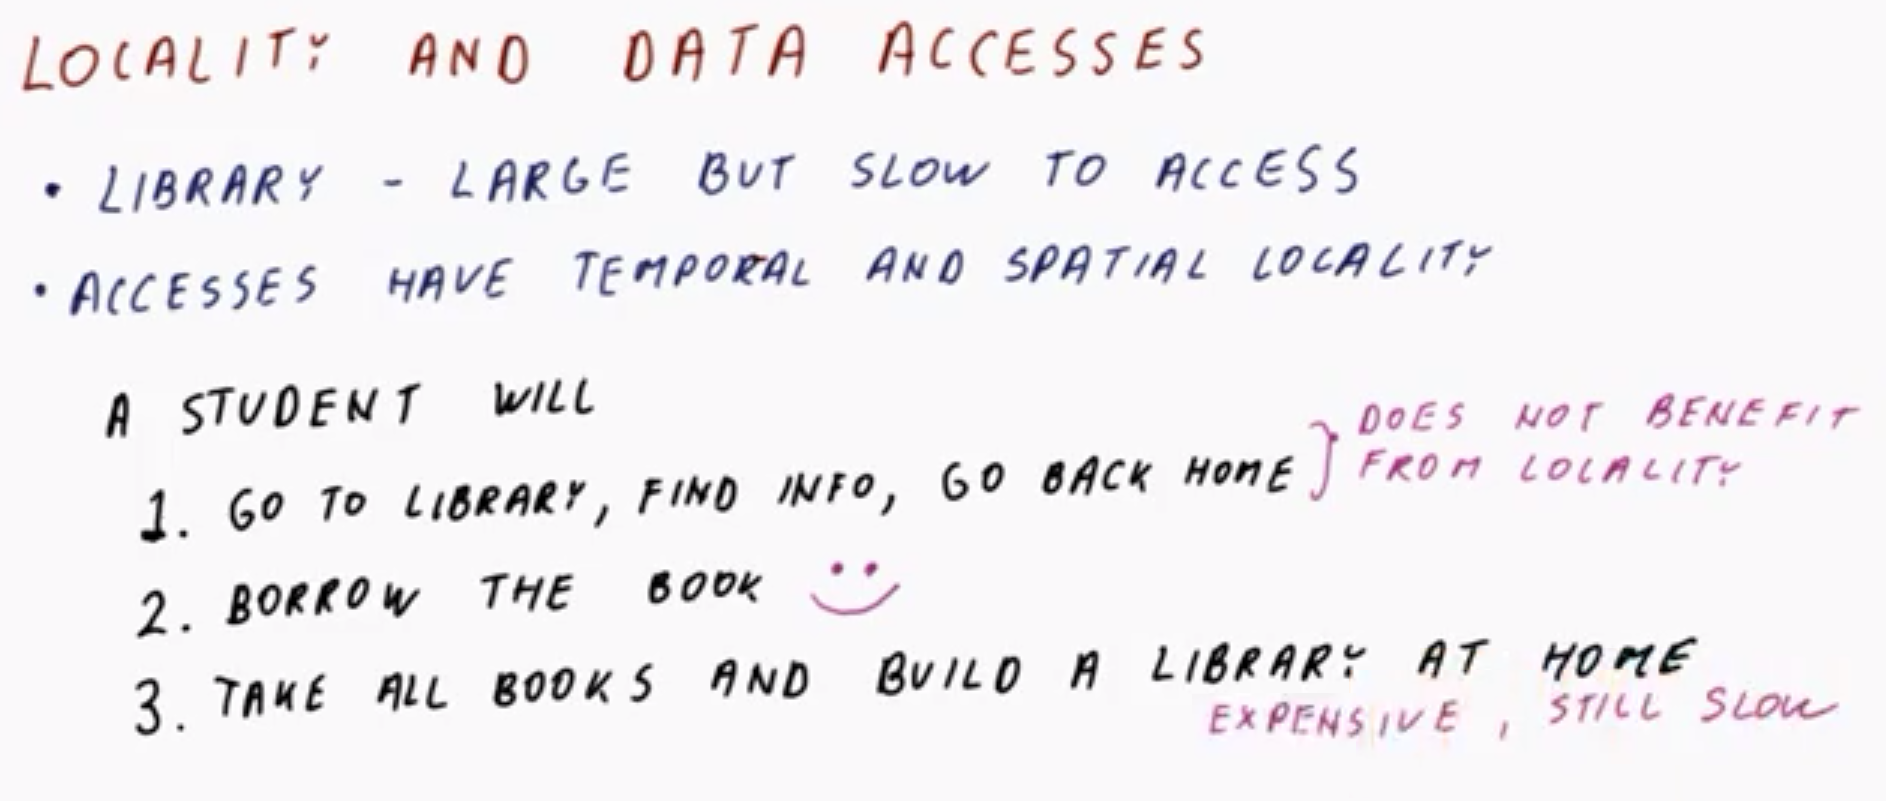 LOCALITY AND DATA ACCESSES
• LIBRARY - LARGE BUT SLOW TO ACCESS
• ACCESSES HAVE TEMPORAL AND SPATIAL LOCALITY
A STUDENT WILL
1. GO TO LIBRARY, FIND INFO, GO BACK HOME } DOES NOT BENEFIT
FROM LOCALITY
2. BORROW THE BOOK
3. TAKE ALL BOOKS AND BUILD A LIBRARY AT HOME
EXPENSIVE, STILL SLOW